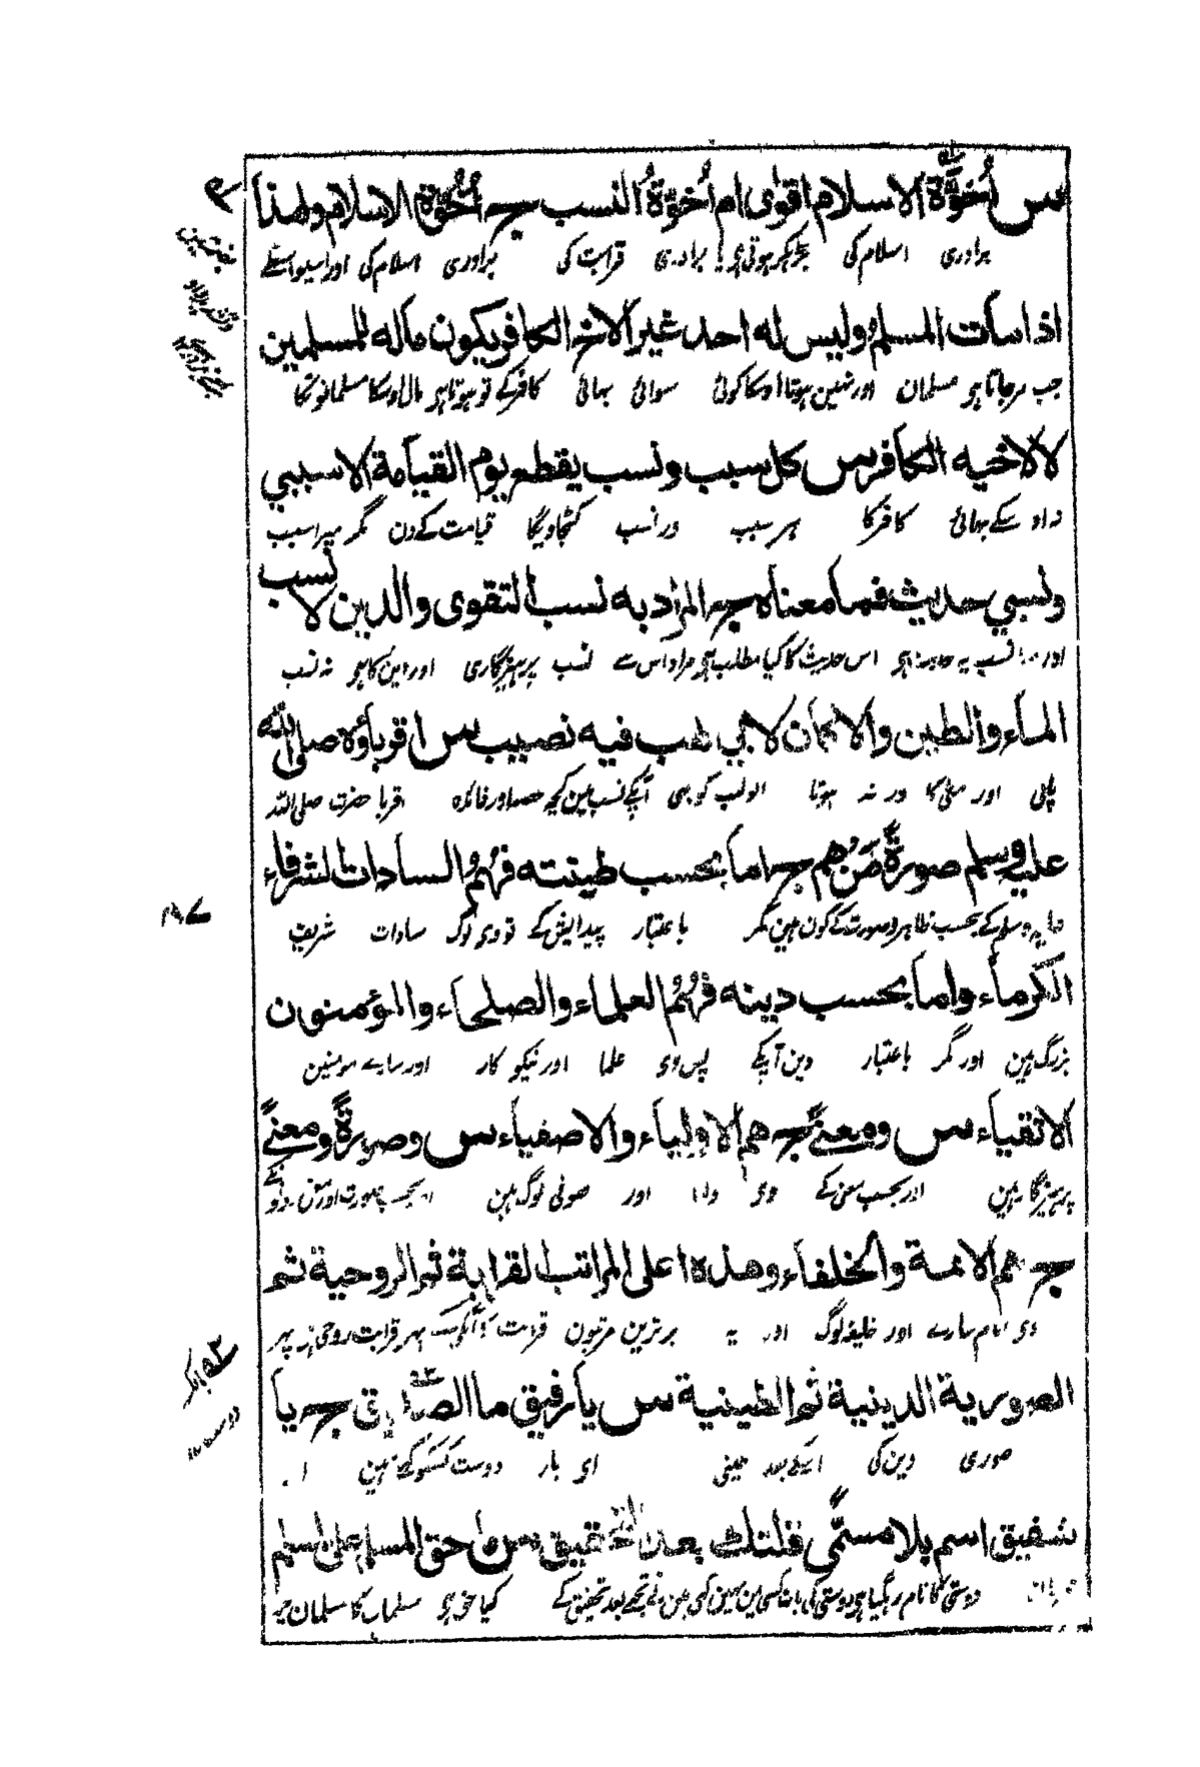 س اُخوّة الاسلام اقوٰى ام اُخوّةُ النسب جـ اُخُوّة الاسلام ولهذا
برادری اسلام کی بڑکر ہوتی ہی! برادری قرابت کی برادری اسلام کی اور اسیواسطے
اذا مات المسلم وليس له احد غير الاخ الكافر يكون ماله للمسلمين
جب مرجاتا ہو مسلمان اور نہین ہوتا اوسکا کوئی سوائی بہائی کافر کے تو ہوتا ہو مال اوسکا مسلمانونکا
لا لاخيه الكافر س كل سبب ونسب يقطع يوم القيامة الا سببي
نہ اوسکے بہائی کافر کا ہر سبب ور نسب کٹجاویگا قیامت کے دن مگر میرا سبب
ونسبي حديث فما معناه جـ المراد به نسب التقوى والدين لا نسب
اور میرا نسب یہ حدیث ہو اس حدیث کا کیا مطلب ہو مراد اس سے نسب پرہیزگاری اور دین کا ہو نہ نسب
الماء والطين والا لكان لابي لهب فيه نصيب س اقرباؤه صلى الله
پانی اور مٹی کا ور نہ ہوتا ابولہب کو بہی آپکے نسب مین کچھ حصہ اور فائدہ اقربا حضرت صلی اللہ
عليه وسلم صورةً مَن هم جـ اما بحسب طينته فهُمُ السادات الشرفاء
علیہ وسلم کے بحسب ظاہر و صورت کے کون ہین مگر باعتبار پیدایش کے تو وہی لوگ سادات شریف
الكرماء واما بحسب دينه فهُمُ العلماء والصلحاء والمؤمنون
بزرگ ہین اور مگر باعتبار دین آپکے پس وہی علما اور نیکو کار اور سارے مومنین
الاتقياء س ومعنىً جـ هم الاولياء والاصفياء س وصورةً ومعنىً
پرہیزگار ہین اور بحسب معنی کے وہی ولی اور صوفی لوگ ہین اور بحسب صورت اور معنی دونو کے
جـ هم الائمة والخلفاء وهذه اعلى المراتب القرابة ثم الروحية ثم
وہی امام سارے اور خلیفہ لوگ اور یہ برترین مرتبون قرابت کے آپکی ہے پہر قرابت روحی ہے پہر
الصورية الدينية ثم الطينية س يا رفيق ما الصادق جـ يا
صوری دین کی اسکے بعد طینی ای یار دوست کسکو کہتے ہین ا
شفيق اسم بلا مسمّى قلتلك بعد التحقيق س ما حق المسلم على المسلم
دوستی کا نام رہگیا ہی دوستی کی بات کسی مین نہین کہی مین نے تجھسے بعد تحقیق کے کیا حق ہو مسلمان کا مسلمان پر
۸۷